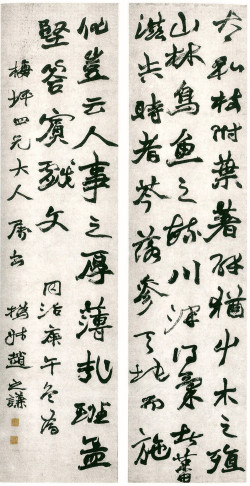 太和枝附葉著辟猶屮木之殖
山林鳥魚之毓川澤得氣者蕃
滋失時者苓落參天地而施
化豈云人事之厚薄哉班孟
堅答賓戲文 同治庚午冬為
梅坪四兄大人屬書 撝叔趙之謙